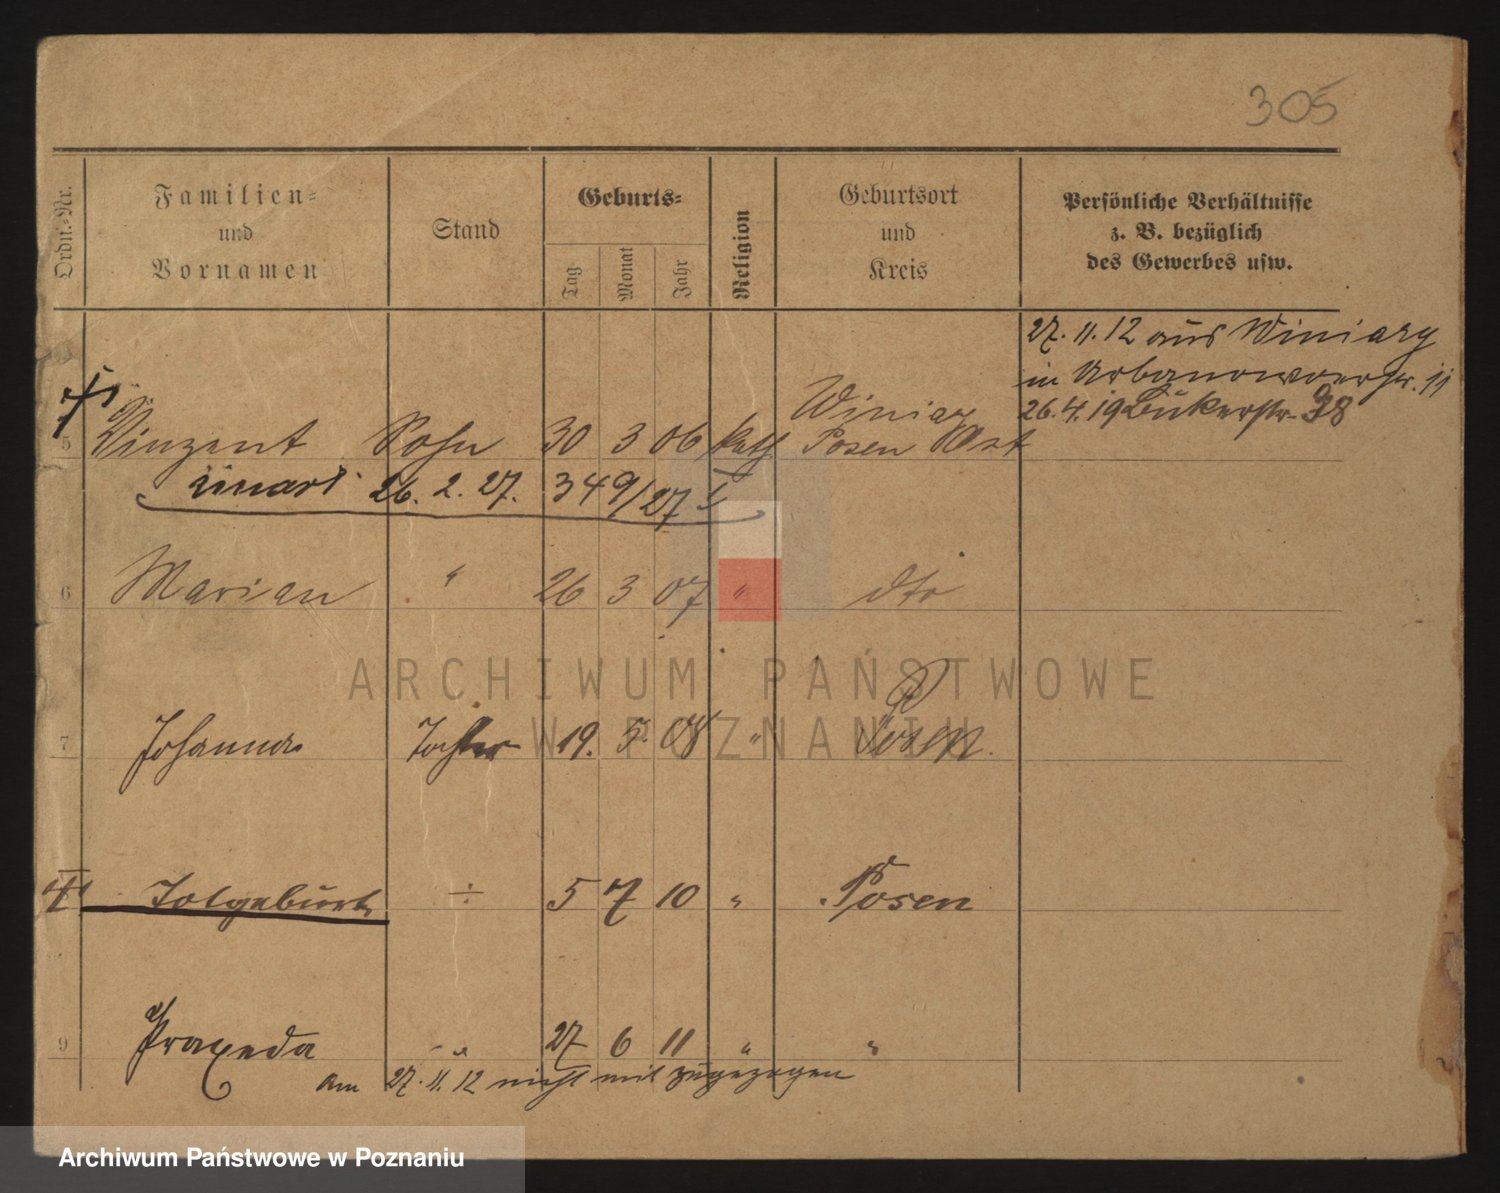 305
Ordn.-Nr.
Familien-
und
Vornamen
Stand
Geburts-
Tag
Monat
Jahr
Religion
Geburtsort
und
Kreis
Persönliche Verhältnisse
z. B. bezüglich
des Gewerbes usw.
27. 11. 12 aus Winiary
in Urbanowoerstr. 11
26. 4. 19 Bukerstr. 38
Winiary
5 Vinzent Sohn 30 3 06 kath Posen Ost
26. 2. 27. 349/27 I
6 Marian " 26 3 07 " dto
7 Johanna Tochter 19. 5. 08 " Posen.
Totgeburt ÷ 5 7 10 " Posen
9 Praxeda " 27 6 11 " "
am 27. 11. 12 nicht mit zugezogen
ARCHIWUM PAŃSTWOWE
W POZNANIU
Archiwum Państwowe w Poznaniu